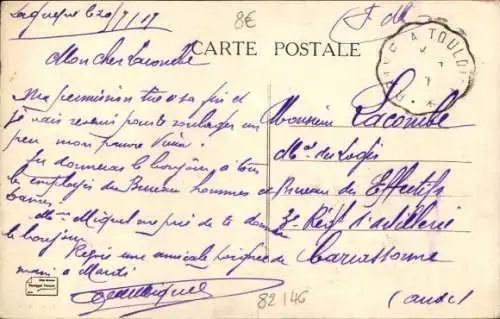 Laguépie le 20/7/17
8€
F. M.
A TOULOU
CARTE POSTALE
Mon cher Lacombe
Ma permission tire à sa fin et
je vais revenir pour te soulager un
peu mon pauvre Vieux.
Tu donneras le bonjour à tous
les employés du Bureau hommes et
Mme Miquel me prie de te donner
le bonjour.
Reçois une amicale poignée de
main à Mardi
Miquel
Monsieur Lacombe
Mal des Logis
Bureau des Effectifs
3e Régt d'artillerie
Carcassonne
(Aude)
82 146